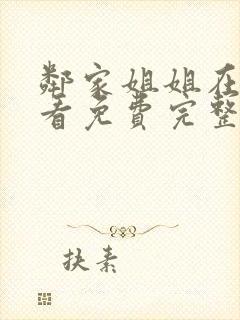 鄰家姐姐在
看免費完整
扶素